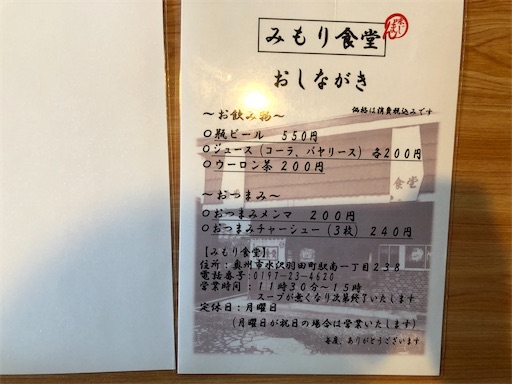 みもり食堂
おしながき
～お飲み物～
価格は消費税込みです
○瓶ビール 550円
○ジュース（コーラ、バヤリース）各200円
○ウーロン茶 200円
食堂
～おつまみ～
○おつまみメンマ 200円
○おつまみチャーシュー（3枚） 240円
【みもり食堂】
住所：奥州市水沢羽田町駅南一丁目238
電話番号：0197-23-4620
営業時間：11時30分～15時
スープが無くなり次第終了いたします
定休日：月曜日
（月曜日が祝日の場合は営業いたします）
毎度、ありがとうございます